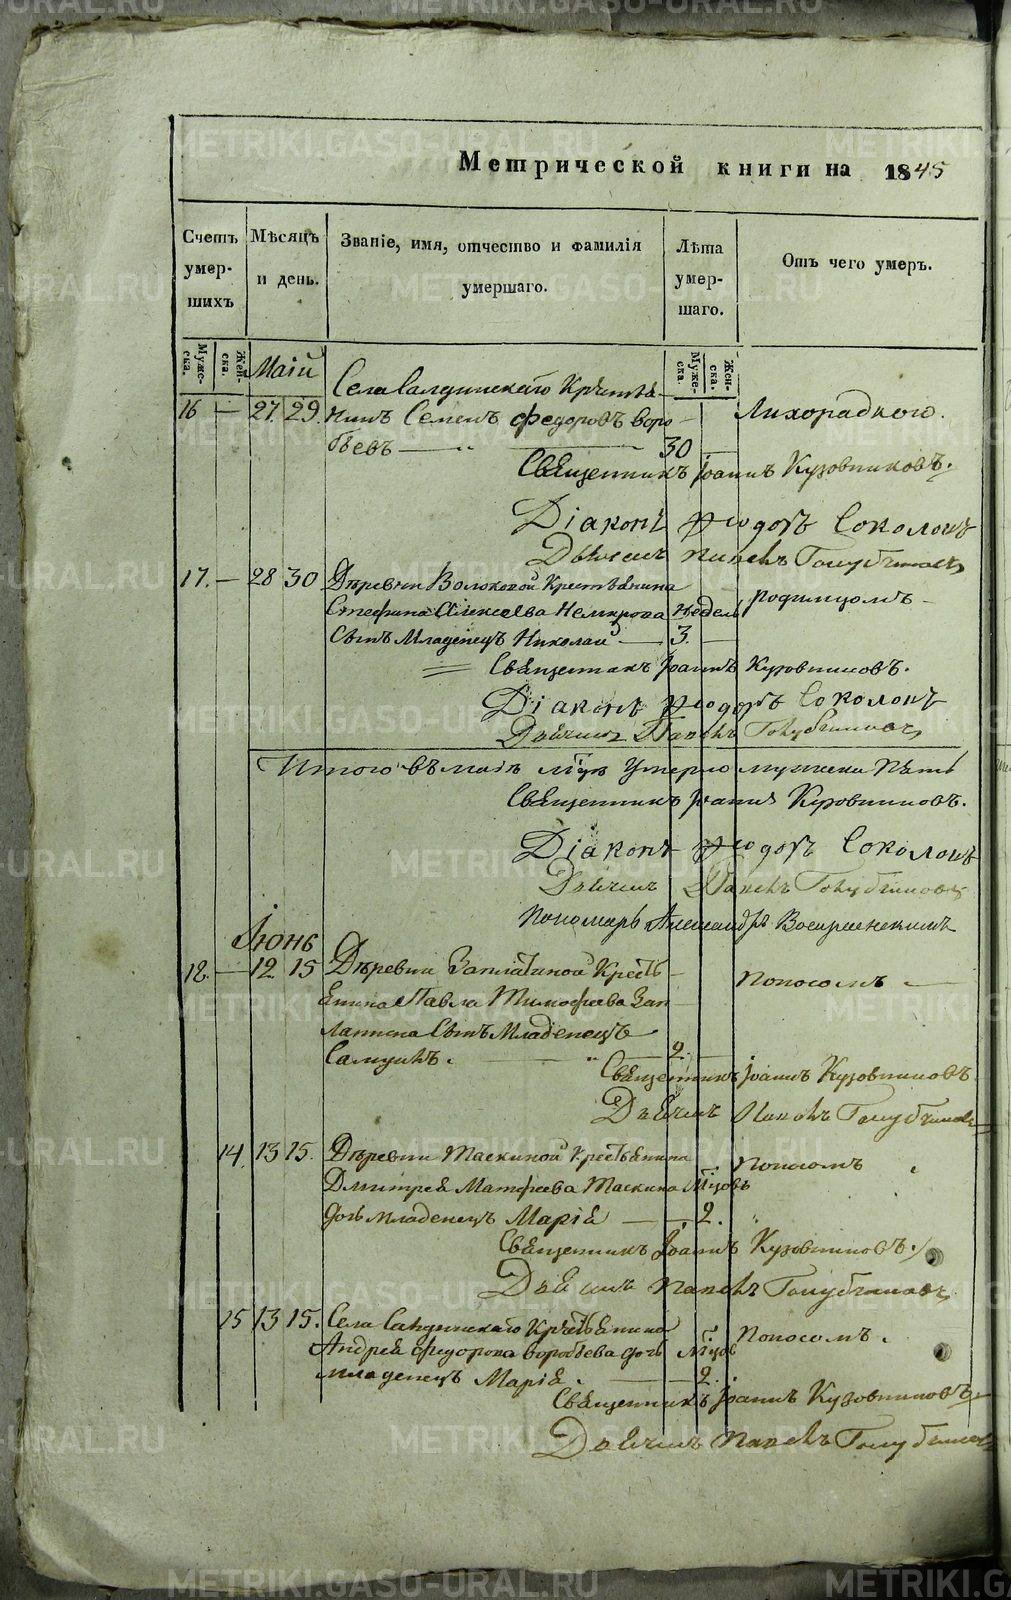 METRIKI.GASO-URAL.RU
Метрической книги на 1845
Счетъ умер- шихъ
Мѣсяцъ и день.
Званіе, имя, отчество и фамилія умершаго.
Лѣта умер- шаго.
Отъ чего умеръ.
Муже- ска.
Жен- ска.
Муже- ска.
Жен- ска.
Маій
Села Салдинскаго Крестья-
16 — 27. 29. нинъ Семенъ Федоровъ Воро- Лихорадкою.
бьевъ — 30
Священникъ Іоаннъ Кузовниковъ.
Діаконъ Ѳеодоръ Соколовъ
Дьячекъ Павелъ Голубчиковъ
17. — 28 30 Деревни Волоковой Крестьянина
Стефана Алексеева Немирова недель родимцомъ
сынъ Младенецъ Николай — 3.
Священникъ Іоаннъ Кузовниковъ.
Діаконъ Ѳеодоръ Соколовъ
Дьячекъ Павелъ Голубчиковъ
Итого въ маіѣ м҃цѣ умерло мужеска пять
Священникъ Іоаннъ Кузовниковъ.
Діаконъ Ѳеодоръ Соколовъ
Дьячекъ Павелъ Голубчиковъ
Пономарь Александръ Воскресенскій
Іюнь
18. — 12 15 Деревни Заплатиной Кресть- Поносомъ
янина Павла Тимофеева Зап-
латина сынъ Младенецъ
Самуилъ. — 2.
Священникъ Іоаннъ Кузовниковъ
Дьячекъ Павелъ Голубчиковъ
14. 13 15. Деревни Таскиной Крестьянина Поносомъ
Дмитрея Матфеева Таскина м҃цовъ
дочь младенецъ Марія — 2.
Священникъ Іоаннъ Кузовниковъ.
Дьячекъ Павелъ Голубчиковъ
15 13 15. Села Салдинскаго Крестьянина Поносомъ.
Андрея Федорова Воробьева дочь м҃цов
младенецъ Марія. — 2.
Священникъ Іоаннъ Кузовниковъ
Дьячекъ Павелъ Голубчиковъ